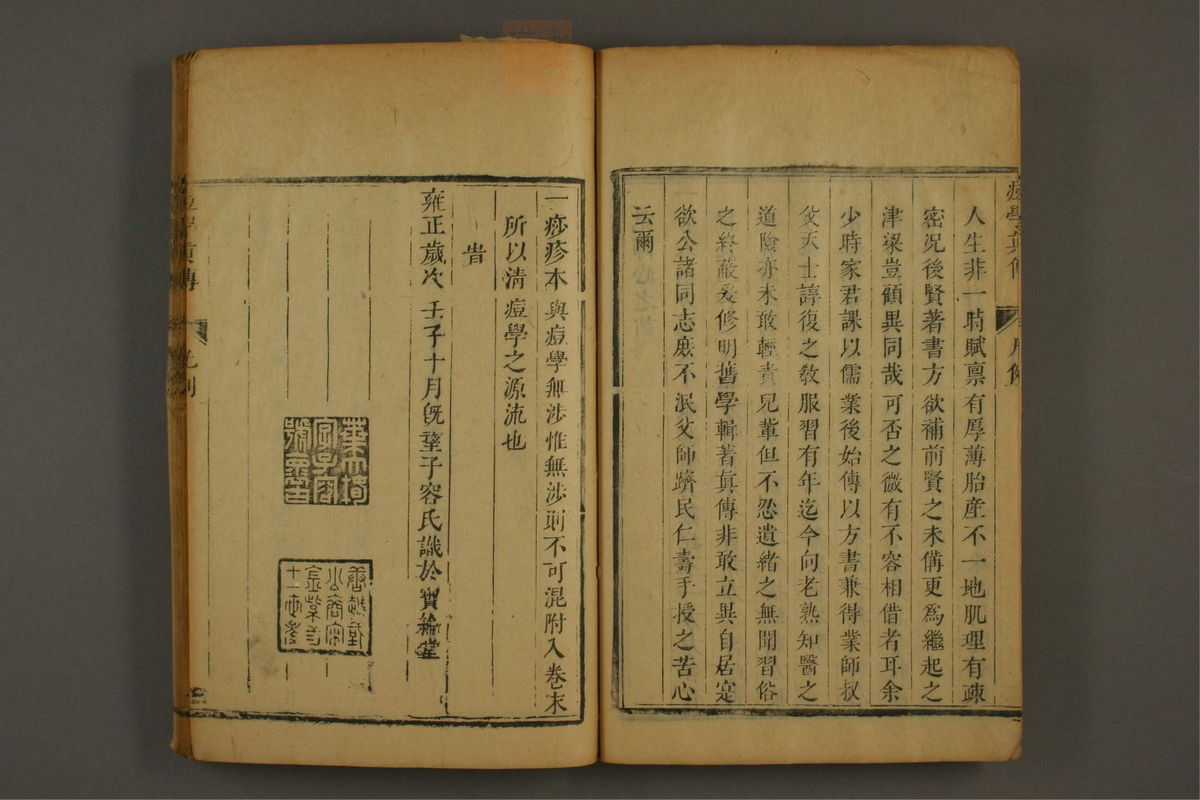 痘學眞傳
人生非一時賦禀有厚薄胎産不一地肌理有疎
密况後賢著書方欲補前賢之未備更爲繼起之
津梁豈顧異同哉可否之微有不容相借者耳余
少時家君課以儒業後始傳以方書兼得業師叔
父天士諄復之敎服習有年迄今向老熟知醫之
道險亦未敢輕責兒輩但不忍遺緒之無聞習俗
之終蔽爰修明舊學輯著眞傳非敢立異自居寔
欲公諸同志庶不泯父師躋民仁壽手授之苦心
云爾
一痧疹本與痘學無涉惟無涉則不可混附入卷末
所以清痘學之源流也
旹
雍正歲次壬子十月旣望子容氏識於寶綸堂
痘學眞傳 凡例